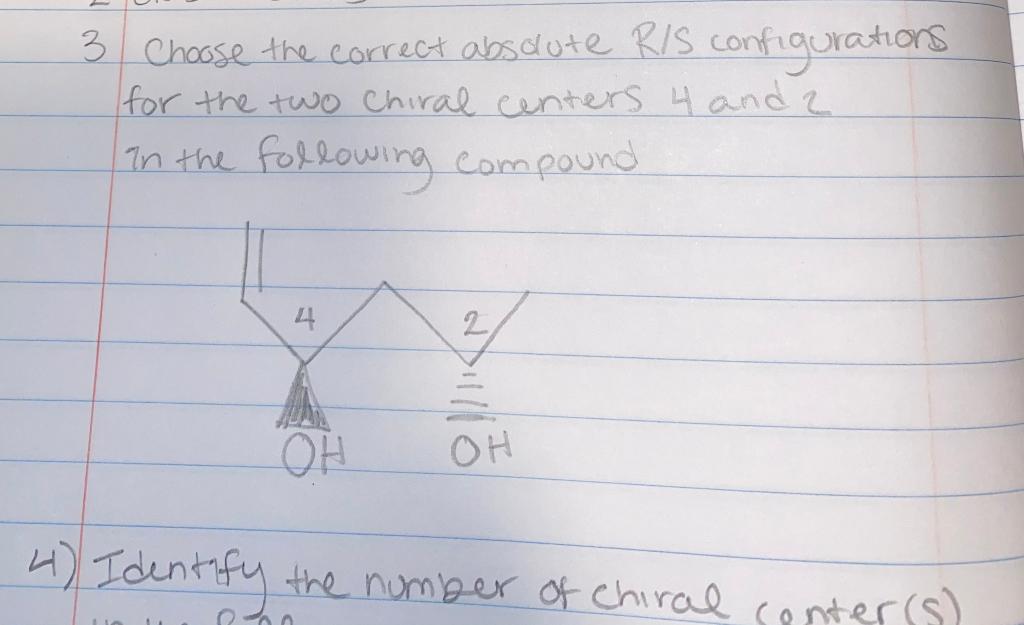 3 Choose the correct absolute R/S configurations
for the two chiral centers 4 and 2
in the following compound
4 2
OH OH
4) Identify the number of chiral center(s)